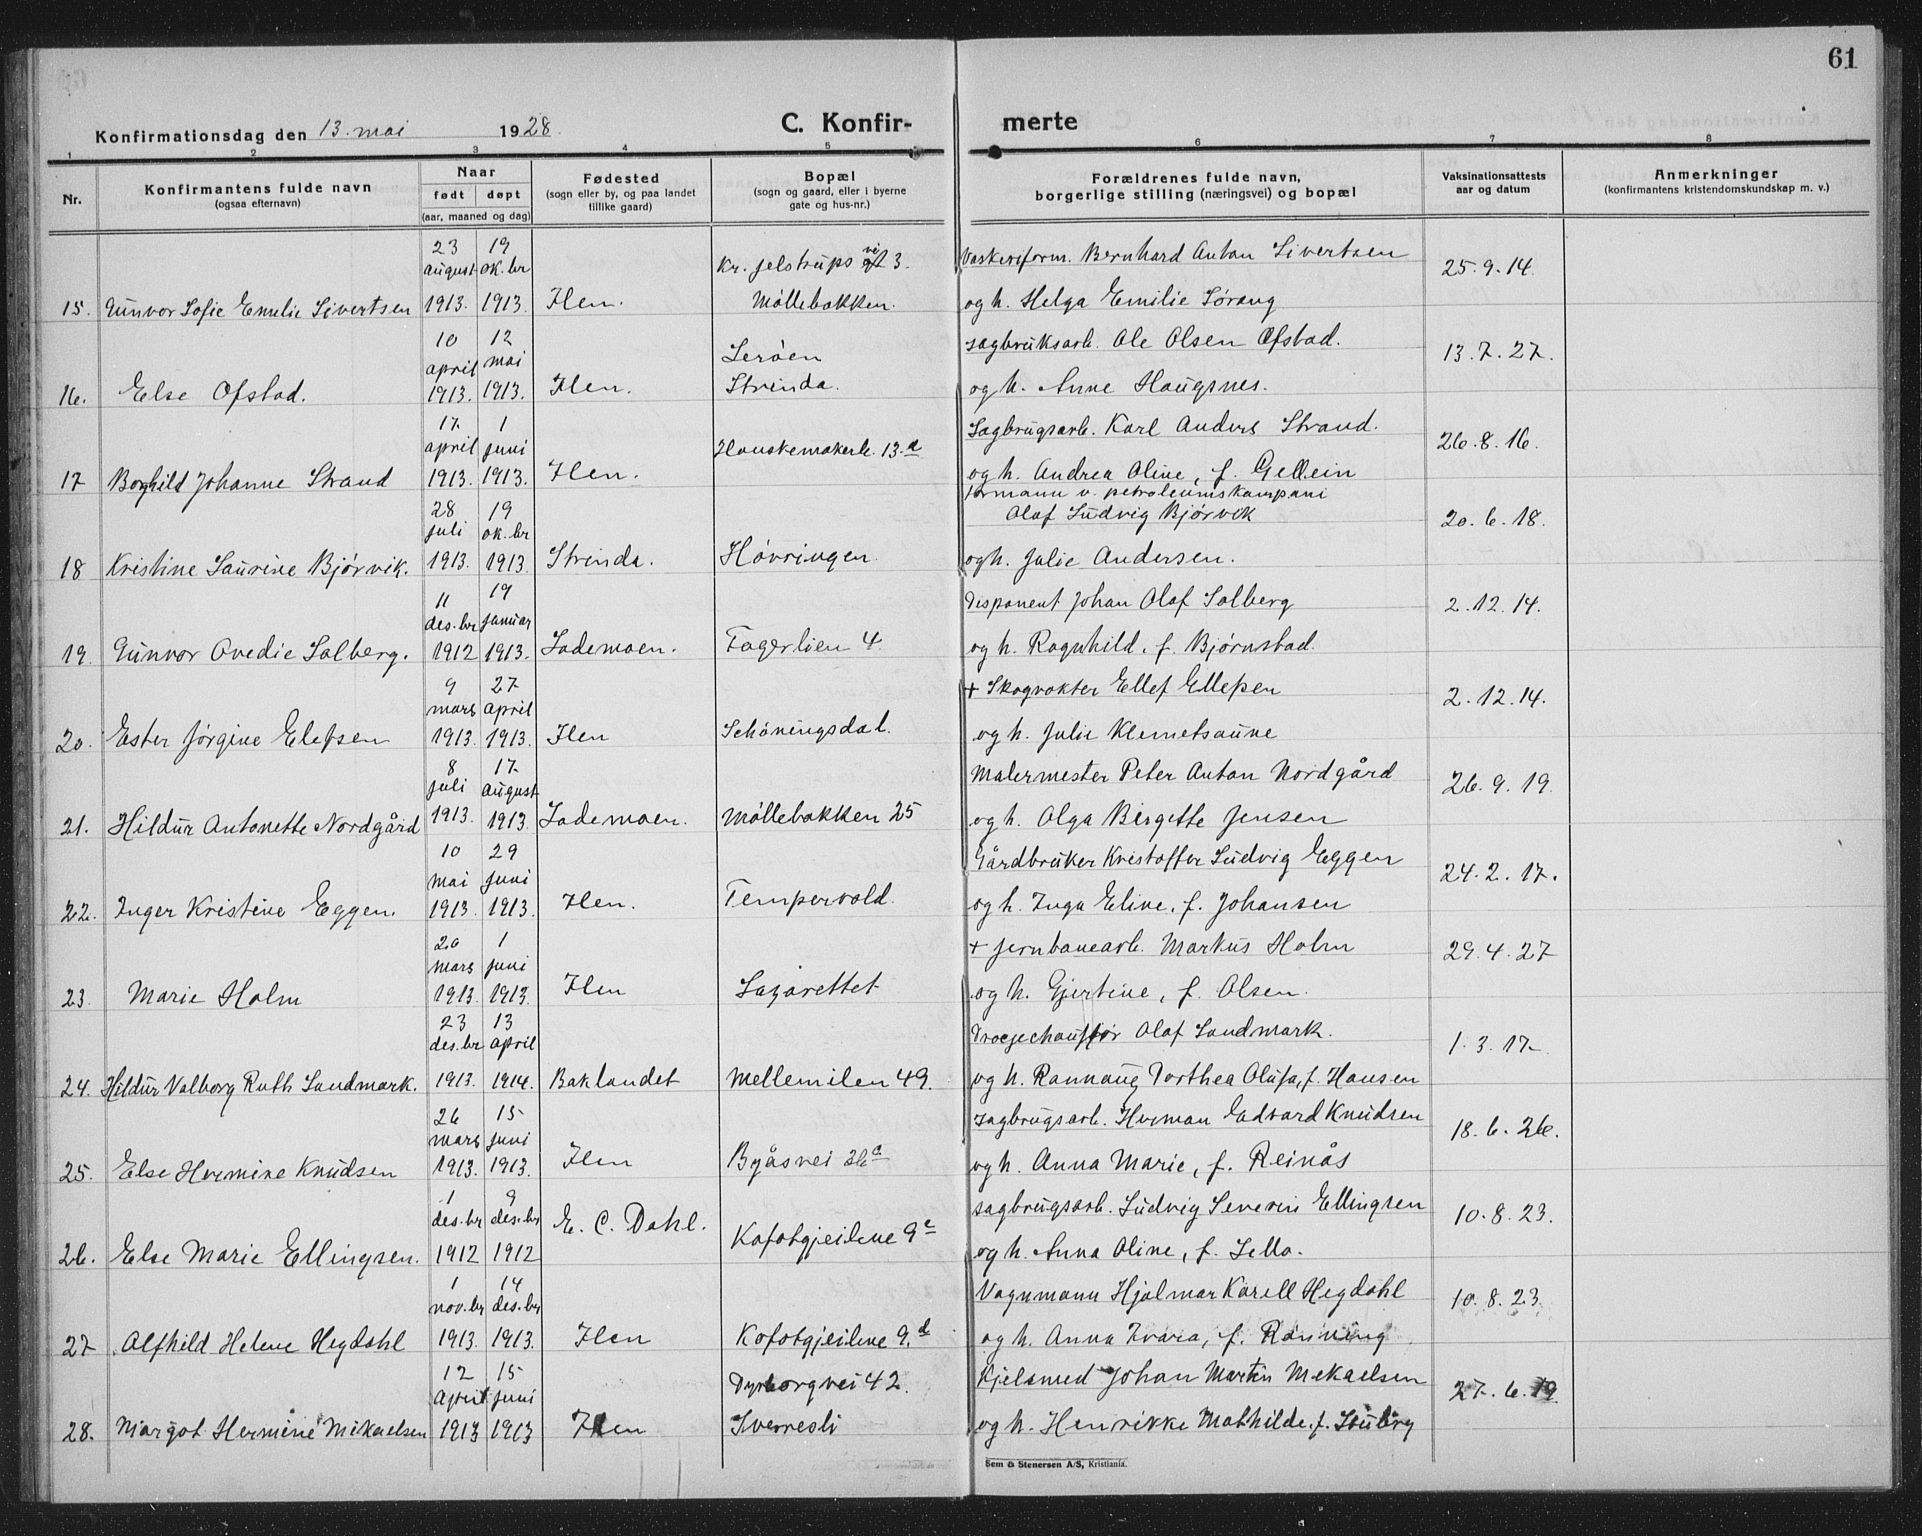 61
Konfirmationsdag den 13. mai 1928.
C. Konfir-
merte
1 2 3 4 5 6 7 8
Nr.
Konfirmantens fulde navn
(ogsaa efternavn)
Naar
født døpt
(aar, maaned og dag)
Fødested
(sogn eller by, og paa landet
tillike gaard)
Bopæl
(sogn og gaard, eller i byerne
gate og hus-nr.)
Forældrenes fulde navn,
borgerlige stilling (næringsvei) og bopæl
Vaksinationsattests
aar og datum
Anmerkninger
(konfirmantens kristendomskundskap m. v.)
23 19
august ok.br Kr. Jelstrups vei 3. Vaskeriform. Bernhard Anton Sivertsen 25.9.14.
15. Gunvor Sofie Emelie Sivertsen 1913. 1913. Ilen. Möllebakken. og h. Helga Emilie Sörang
10 12
april mai Leröen Sagbruksarb. Ole Olsen Ofstad. 13.7.27.
16. Else Ofstad. 1913. 1913. Ilen. Strinda. og h. Anne Haugsnes.
17 1
april juni Hanskemakerb. 13.a Sagbrugsarb. Karl Anders Strand. 26.8.16.
17 Borghild Johanne Strand 1913. 1913. Ilen. og h. Andrea Oline, f. Gellein
28 19 formann v. petroleumskompani
juli ok.br Olaf Ludvig Bjørvik 20.6.18.
18 Kristine Laurine Bjørvik. 1913. 1913. Strinda. Hövringen. og h. Julie Andersen.
11 19
des.br januar Disponent Johan Olaf Solberg 2.12.14.
19. Gunvor Ovedie Solberg. 1912 1913. Lademoen. Fagerlien 4. og h. Ragnhild, f. Bjørnstad.
9 27
mars april + Skogvokter Ellef Ellefsen 2.12.14.
20. Ester Jørgine Elefsen 1913. 1913. Ilen Schöningsdal. og h. Julie Klemetsaune
8 17
juli august Malermester Peter Anton Nordgård 26.9.19.
21. Hildur Antonette Nordgård 1913. 1913. Lademoen. Möllebakken 25 og h. Olga Birgette Jensen
10 29
mai juni Gårdbruker Kristoffer Ludvig Eggen 24.2.17.
22. Inger Kristine Eggen. 1913. 1913. Ilen. Tempervold. og h. Inga Eline, f. Johansen
20 1
mars juni + jernbanearb. Markus Holm 29.4.27
23. Marie Holm 1913. 1913. Ilen Lazarettet og h. Gjertine, f. Olsen.
23 13
des.br april Drosjechauffør Olaf Sandmark. 1.3.17.
24. Hildur Valborg Ruth Sandmark. 1913. 1914. Baklandet Mellemilen 49. og h. Rannaug Dorthea Olufa, f. Hansen
26 15
mars juni Sagbrugsarb. Herman Edvard Knudsen 18.6.26.
25. Else Hermine Knudsen 1913. 1913. Ilen Byåsvei 36c og h. Anna Marie, f. Reinås
1 9
des.br des.br Sagbrugsarb. Ludvig Severin Ellingsen 10.8.23.
26. Else Marie Ellingsen. 1912 1912 E. C. Dahl. Kofotgjeilene 9c og h. Anna Oline, f.
1 14
nov.br des.br Vognmann Hjalmar Karell Hegdahl 10.8.23.
27 Alfhild Helene Hegdahl 1913. 1913. Ilen Kofotgjeilene 9.d og h. Anna f. Rönning.
12 15
april juni Dyrborgvei 42. Kjelsmed Johan Martin Mikaelsen 27.6.19
28. Margot Hermine Mikaelsen 1913 1913 Ilen Sverresli og h. Henrikke Mathilde, f. Stuberg
Sem & Stenersen A/S, Kristiania.